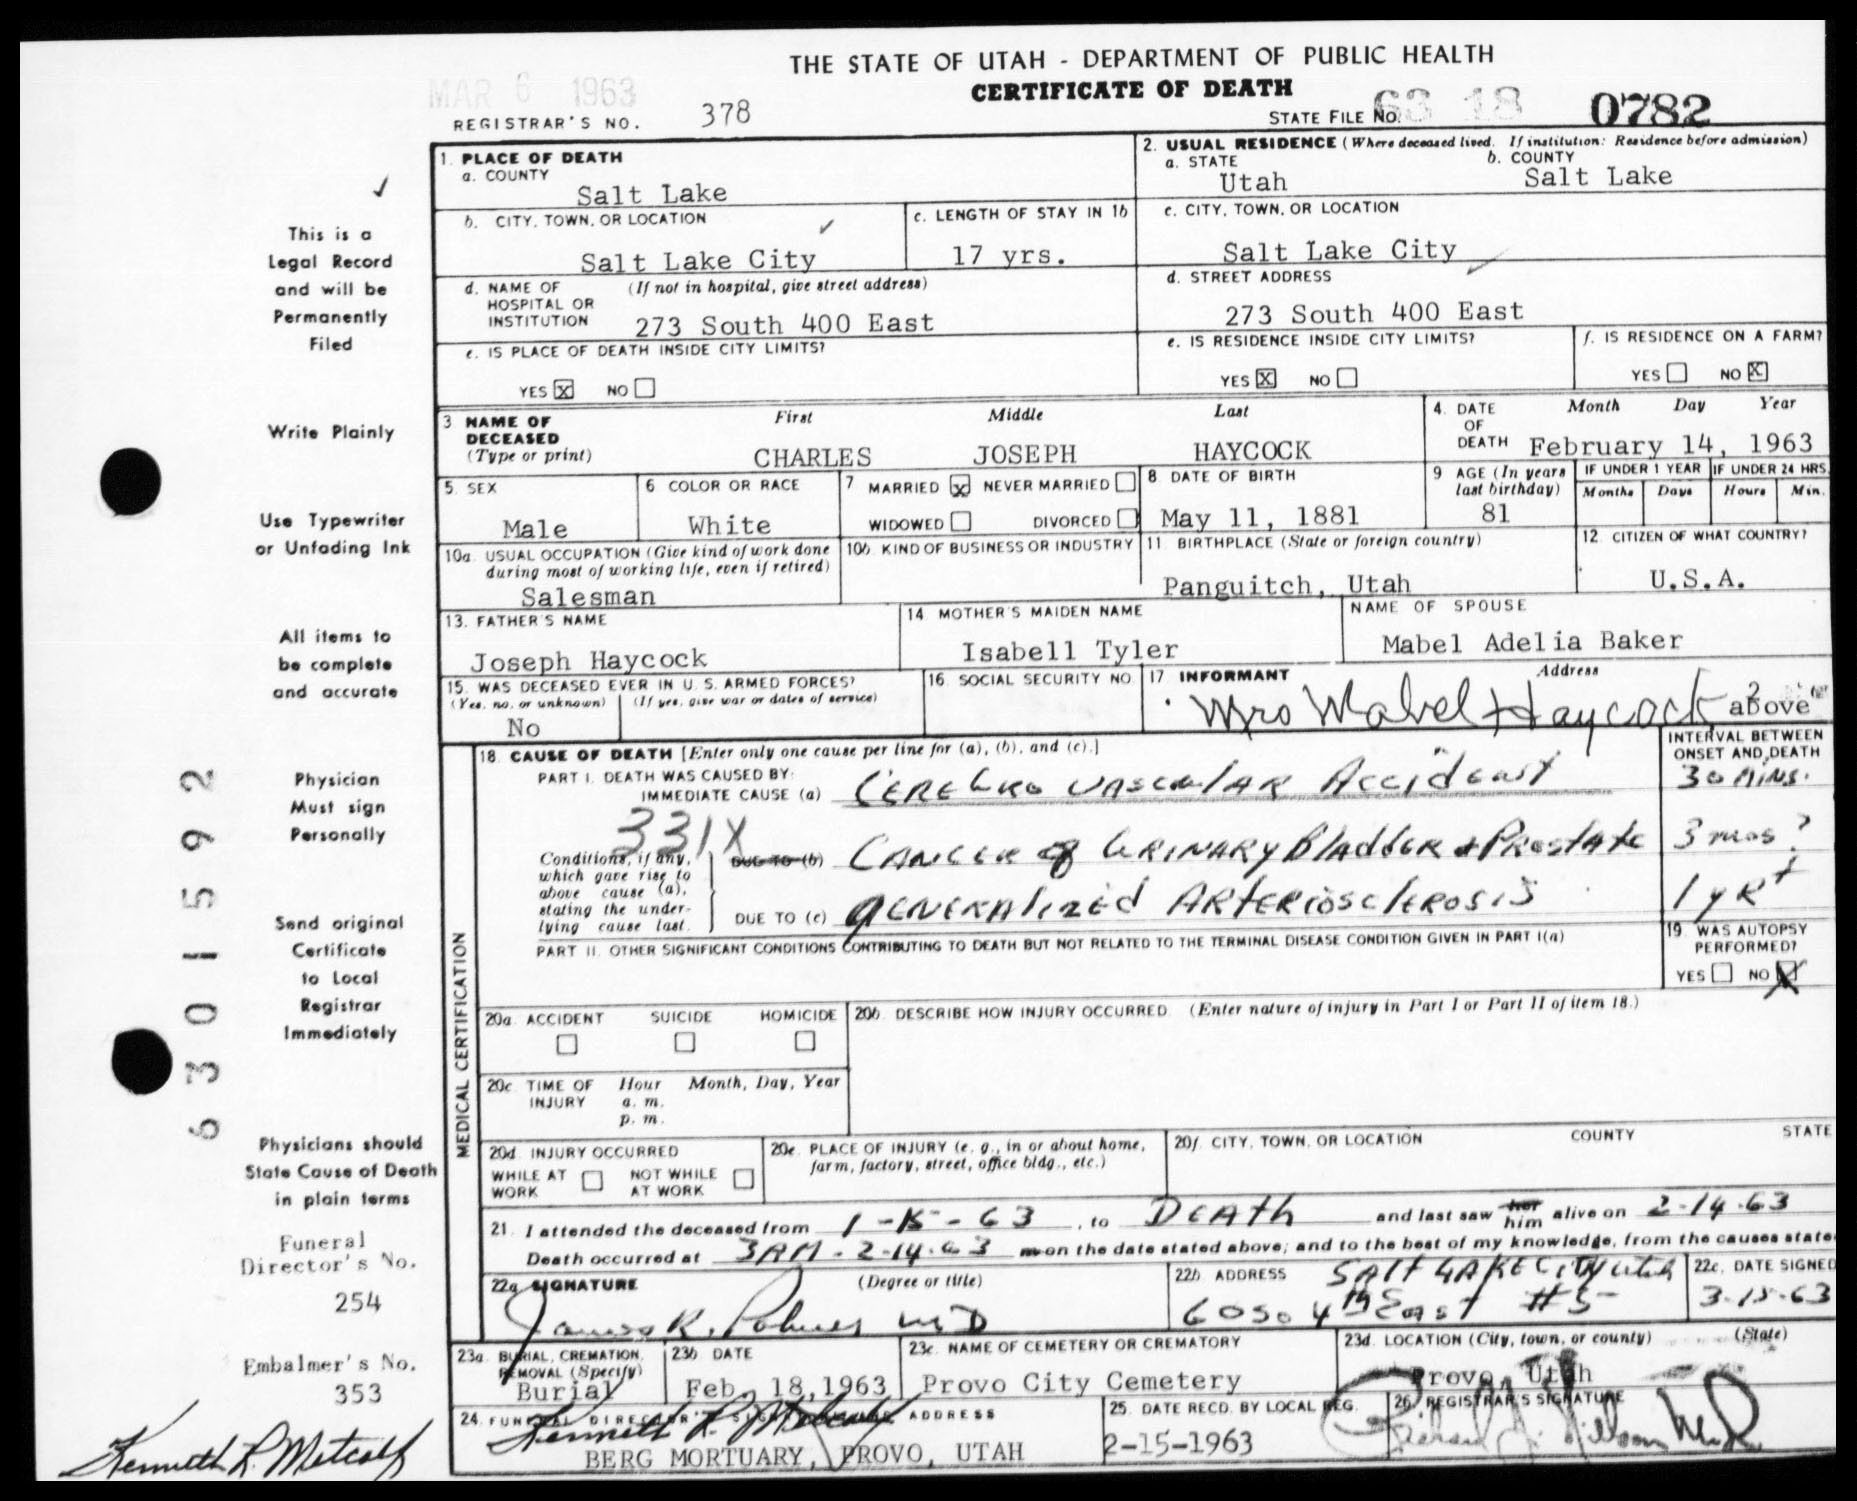 THE STATE OF UTAH - DEPARTMENT OF PUBLIC HEALTH
CERTIFICATE OF DEATH
MAR 6 1963
REGISTRAR'S NO. 378
STATE FILE NO. 63 18 0782
This is a
Legal Record
and will be
Permanently
Filed
Write Plainly
Use Typewriter
or Unfading Ink
All items to
be complete
and accurate
Physician
Must sign
Personally
Send original
Certificate
to Local
Registrar
Immediately
Physicians should
State Cause of Death
in plain terms
Funeral
Director's No.
254
Embalmer's No.
353
Kenneth R. Metcalf
6301592
1. PLACE OF DEATH
a. COUNTY
Salt Lake
b. CITY, TOWN, OR LOCATION
Salt Lake City
c. LENGTH OF STAY IN 1b
17 yrs.
d. NAME OF (If not in hospital, give street address)
HOSPITAL OR
INSTITUTION 273 South 400 East
e. IS PLACE OF DEATH INSIDE CITY LIMITS?
YES X NO
2. USUAL RESIDENCE (Where deceased lived. If institution: Residence before admission)
a. STATE b. COUNTY
Utah Salt Lake
c. CITY, TOWN, OR LOCATION
Salt Lake City
d. STREET ADDRESS
273 South 400 East
e. IS RESIDENCE INSIDE CITY LIMITS?
YES X NO
f. IS RESIDENCE ON A FARM?
YES NO X
3 NAME OF First Middle Last
DECEASED
(Type or print) CHARLES JOSEPH HAYCOCK
4. DATE Month Day Year
OF
DEATH February 14, 1963
5. SEX
Male
6 COLOR OR RACE
White
7 MARRIED X NEVER MARRIED
WIDOWED DIVORCED
8. DATE OF BIRTH
May 11, 1881
9 AGE (In years
last birthday)
81
IF UNDER 1 YEAR IF UNDER 24 HRS.
Months Days Hours Min.
10a. USUAL OCCUPATION (Give kind of work done
during most of working life, even if retired)
Salesman
10b. KIND OF BUSINESS OR INDUSTRY
11. BIRTHPLACE (State or foreign country)
Panguitch, Utah
12. CITIZEN OF WHAT COUNTRY?
U.S.A.
13. FATHER'S NAME
Joseph Haycock
14 MOTHER'S MAIDEN NAME
Isabell Tyler
NAME OF SPOUSE
Mabel Adelia Baker
15. WAS DECEASED EVER IN U. S. ARMED FORCES?
(Yes, no, or unknown) (If yes, give war or dates of service)
No
16. SOCIAL SECURITY NO
17 INFORMANT Address
Mrs Mabel Haycock above 2
MEDICAL CERTIFICATION
18. CAUSE OF DEATH [Enter only one cause per line for (a), (b), and (c).]
INTERVAL BETWEEN
ONSET AND DEATH
PART I. DEATH WAS CAUSED BY:
IMMEDIATE CAUSE (a) Cerebro vascular Accident 30 mins.
331X
Conditions, if any,
which gave rise to
above cause (a),
stating the under-
lying cause last.
DUE TO (b) Cancer of Urinary Bladder & Prostate 3 mos?
DUE TO (c) generalized Arteriosclerosis 1 yr+
PART II. OTHER SIGNIFICANT CONDITIONS CONTRIBUTING TO DEATH BUT NOT RELATED TO THE TERMINAL DISEASE CONDITION GIVEN IN PART I(a)
19. WAS AUTOPSY
PERFORMED?
YES NO X
20a. ACCIDENT SUICIDE HOMICIDE
20b. DESCRIBE HOW INJURY OCCURRED. (Enter nature of injury in Part I or Part II of item 18.)
20c. TIME OF Hour Month, Day, Year
INJURY a. m.
p. m.
20d. INJURY OCCURRED
WHILE AT WORK NOT WHILE AT WORK
20e. PLACE OF INJURY (e. g., in or about home,
farm, factory, street, office bldg., etc.)
20f. CITY, TOWN, OR LOCATION COUNTY STATE
21. I attended the deceased from 1-15-63, to Death and last saw her him alive on 2-14-63
Death occurred at 3AM - 2-14-63 m on the date stated above; and to the best of my knowledge, from the causes state
22a. SIGNATURE (Degree or title)
James R. MD
22b. ADDRESS Salt Lake City Utah
60 So 4th East #5
22c. DATE SIGNED
3-15-63
23a. BURIAL, CREMATION,
REMOVAL (Specify)
Burial
23b DATE
Feb. 18,1963
23c. NAME OF CEMETERY OR CREMATORY
Provo City Cemetery
23d. LOCATION (City, town, or county) (State)
Provo, Utah
24. FUNERAL DIRECTOR'S SIGNATURE ADDRESS
Kenneth R. Metcalf
BERG MORTUARY, PROVO, UTAH
25. DATE RECD. BY LOCAL REG.
2-15-1963
26. REGISTRAR'S SIGNATURE